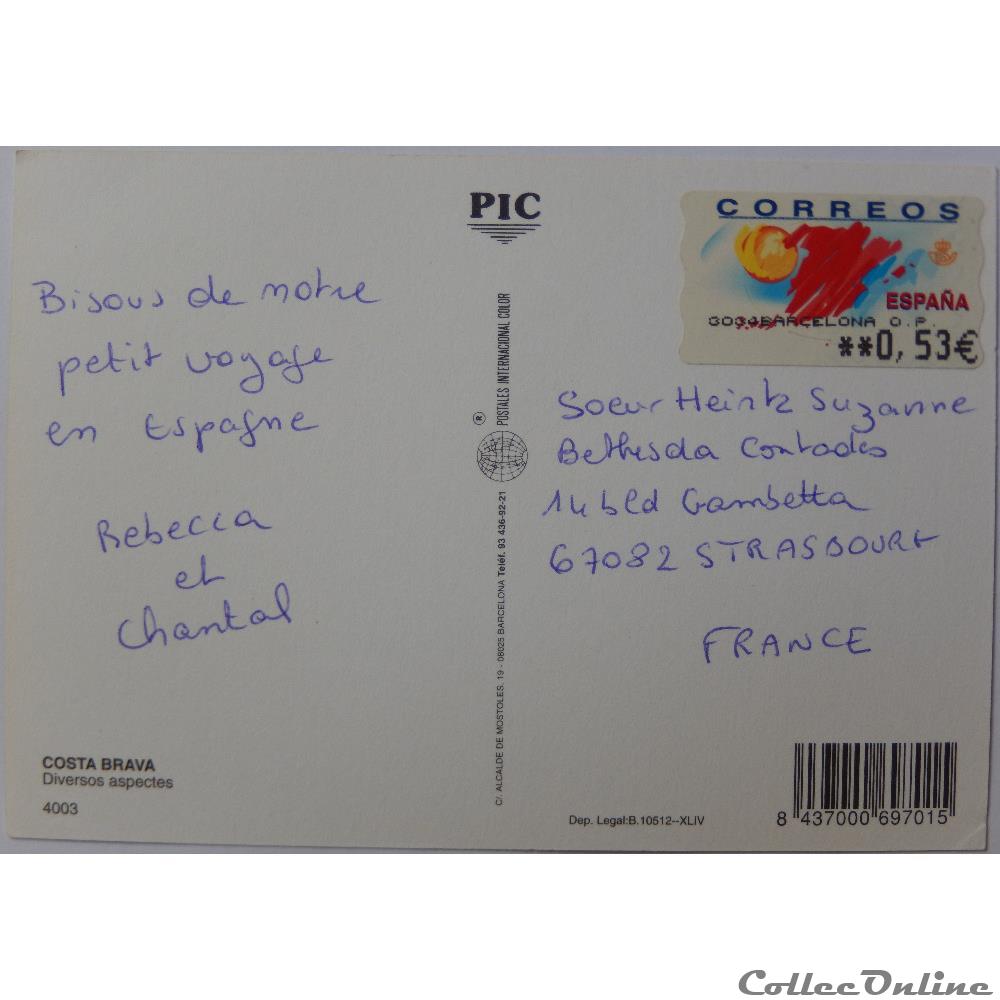 PIC
CORREOS
ESPAÑA
BARCELONA O.P.
**0,53€
Bisous de notre
petit voyage
en Espagne
Rebecca
et
Chantal
® POSTALES INTERNACIONAL COLOR
C/. ALCALDE DE MOSTOLES, 19 - 08025 BARCELONA Teléf. 93 436-92-21
Soeur Heintz Suzanne
Bethesda Contades
14 bld Gambetta
67082 STRASBOURG
FRANCE
COSTA BRAVA
Diversos aspectes
4003
Dep. Legal:B.10512--XLIV
8 437000 697015
CollecOnline